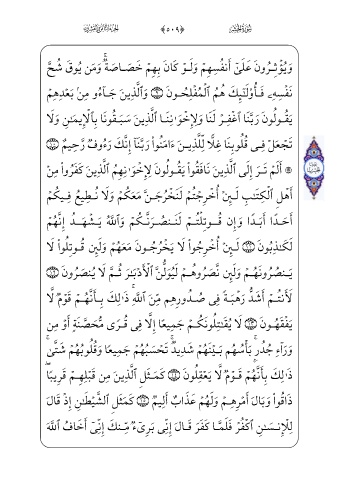 وَيُؤْثِرُونَ عَلَىٰٓ أَنفُسِهِمْ وَلَوْ كَانَ بِهِمْ خَصَاصَةٌ ۚ وَمَن يُوقَ شُحَّ
نَفْسِهِۦ فَأُو۟لَـٰٓئِكَ هُمُ ٱلْمُفْلِحُونَ وَٱلَّذِينَ جَآءُو مِنۢ بَعْدِهِمْ
يَقُولُونَ رَبَّنَا ٱغْفِرْ لَنَا وَلِإِخْوَٰنِنَا ٱلَّذِينَ سَبَقُونَا بِٱلْإِيمَـٰنِ وَلَا
تَجْعَلْ فِى قُلُوبِنَا غِلًّا لِّلَّذِينَ ءَامَنُوا۟ رَبَّنَآ إِنَّكَ رَءُوفٌ رَّحِيمٌ
۞ أَلَمْ تَرَ إِلَى ٱلَّذِينَ نَافَقُوا۟ يَقُولُونَ لِإِخْوَٰنِهِمُ ٱلَّذِينَ كَفَرُوا۟ مِنْ
أَهْلِ ٱلْكِتَـٰبِ لَئِنْ أُخْرِجْتُمْ لَنَخْرُجَنَّ مَعَكُمْ وَلَا نُطِيعُ فِيكُمْ
أَحَدًا أَبَدًا وَإِن قُوتِلْتُمْ لَنَنصُرَنَّكُمْ وَٱللَّهُ يَشْهَدُ إِنَّهُمْ
لَكَـٰذِبُونَ لَئِنْ أُخْرِجُوا۟ لَا يَخْرُجُونَ مَعَهُمْ وَلَئِن قُوتِلُوا۟ لَا
يَنصُرُونَهُمْ وَلَئِن نَّصَرُوهُمْ لَيُوَلُّنَّ ٱلْأَدْبَـٰرَ ثُمَّ لَا يُنصَرُونَ
لَأَنتُمْ أَشَدُّ رَهْبَةً فِى صُدُورِهِم مِّنَ ٱللَّهِ ۚ ذَٰلِكَ بِأَنَّهُمْ قَوْمٌ لَّا
يَفْقَهُونَ لَا يُقَـٰتِلُونَكُمْ جَمِيعًا إِلَّا فِى قُرًى مُّحَصَّنَةٍ أَوْ مِن
وَرَآءِ جُدُرٍۭ ۚ بَأْسُهُم بَيْنَهُمْ شَدِيدٌ ۚ تَحْسَبُهُمْ جَمِيعًا وَقُلُوبُهُمْ شَتَّىٰ ۚ
ذَٰلِكَ بِأَنَّهُمْ قَوْمٌ لَّا يَعْقِلُونَ كَمَثَلِ ٱلَّذِينَ مِن قَبْلِهِمْ قَرِيبًا ۖ
ذَاقُوا۟ وَبَالَ أَمْرِهِمْ وَلَهُمْ عَذَابٌ أَلِيمٌ كَمَثَلِ ٱلشَّيْطَـٰنِ إِذْ قَالَ
لِلْإِنسَـٰنِ ٱكْفُرْ فَلَمَّا كَفَرَ قَالَ إِنِّى بَرِىٓءٌ مِّنكَ إِنِّىٓ أَخَافُ ٱللَّهَ